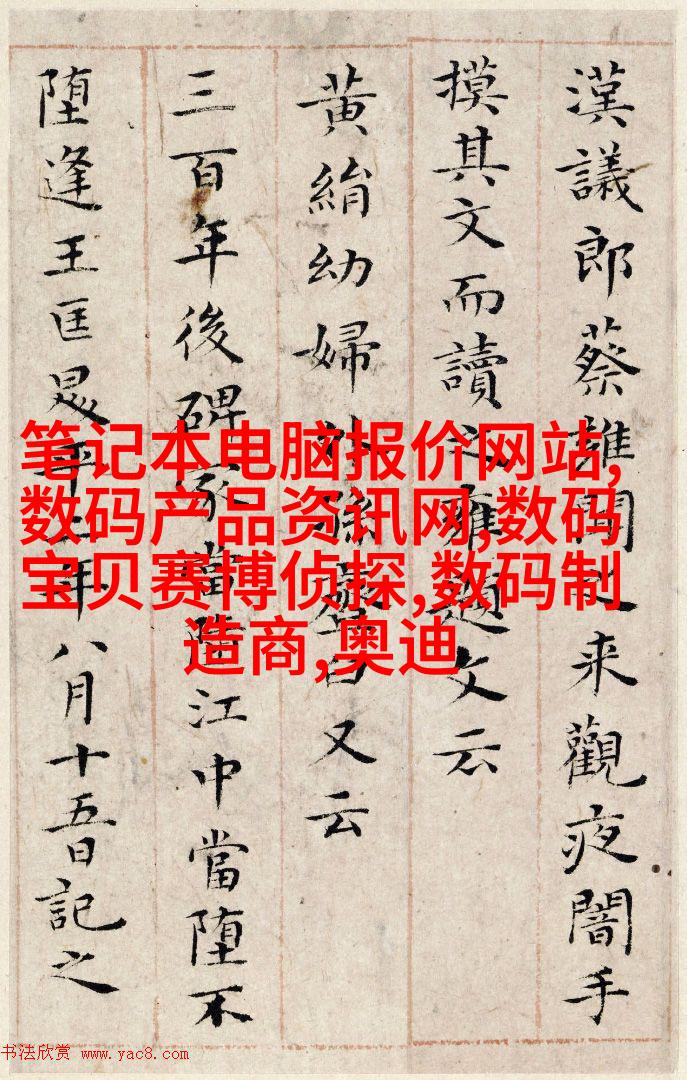 漢議郎蔡雝聞之来觀夜闇手
摸其文而讀之雍題文云
黄絹幼婦外孫臼又云
三百年後碑冢當堕江中當堕不
堕逢王匡平二年八月十五日記之
笔记本电脑报价网站,
数码产品资讯网,数码
宝贝赛博侦探,数码制
造商,奥迪
书法欣赏 www.yac8.com